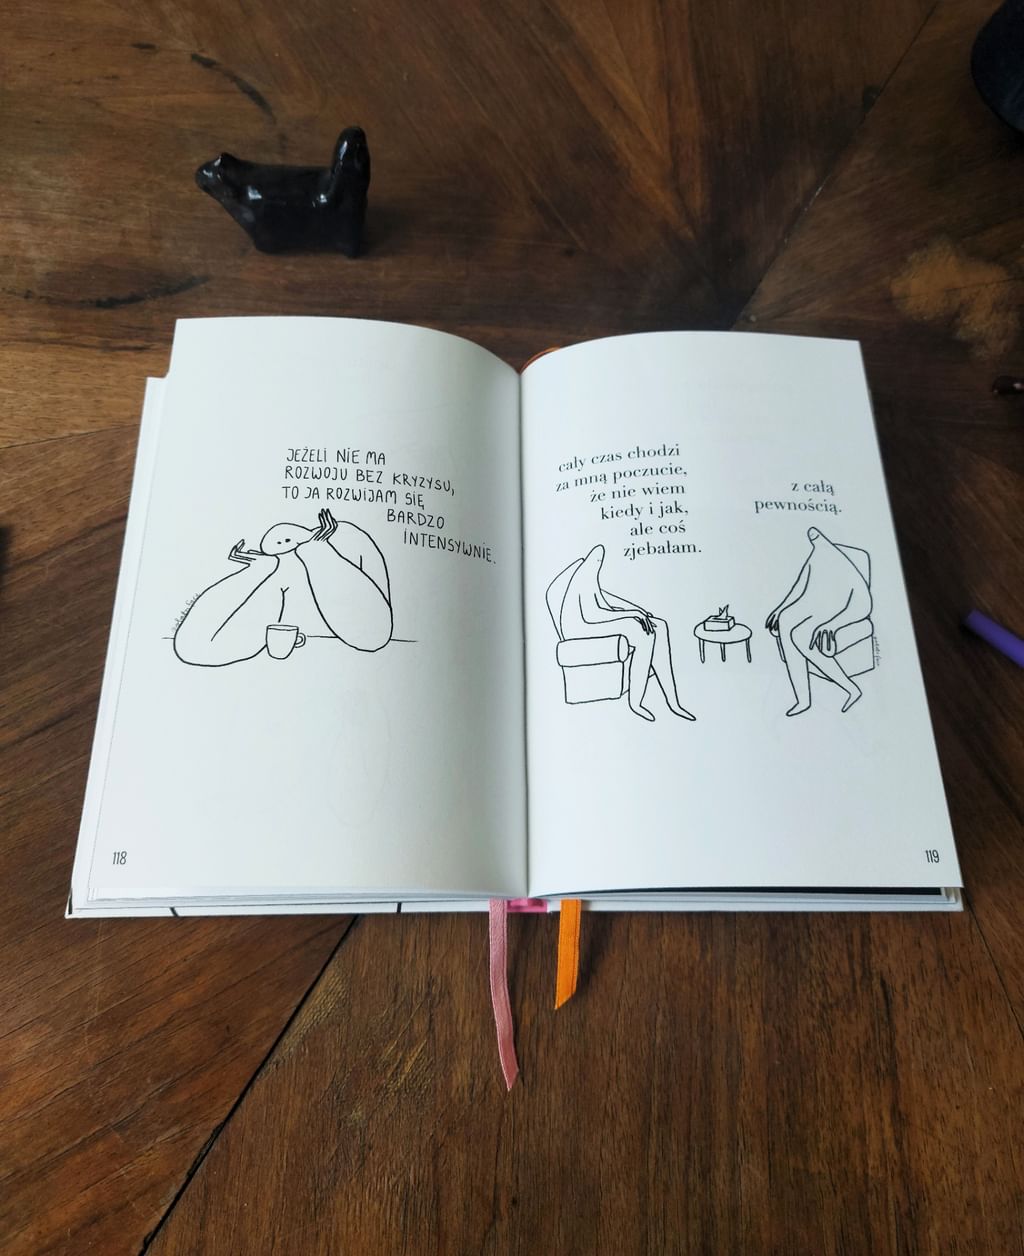 JEŻELI NIE MA
ROZWOJU BEZ KRYZYSU,
TO JA ROZWIJAM SIĘ
BARDZO
INTENSYWNIE.
118
cały czas chodzi
za mną poczucie,
że nie wiem
kiedy i jak,
ale coś
zjebałam.
z całą
pewnością.
119